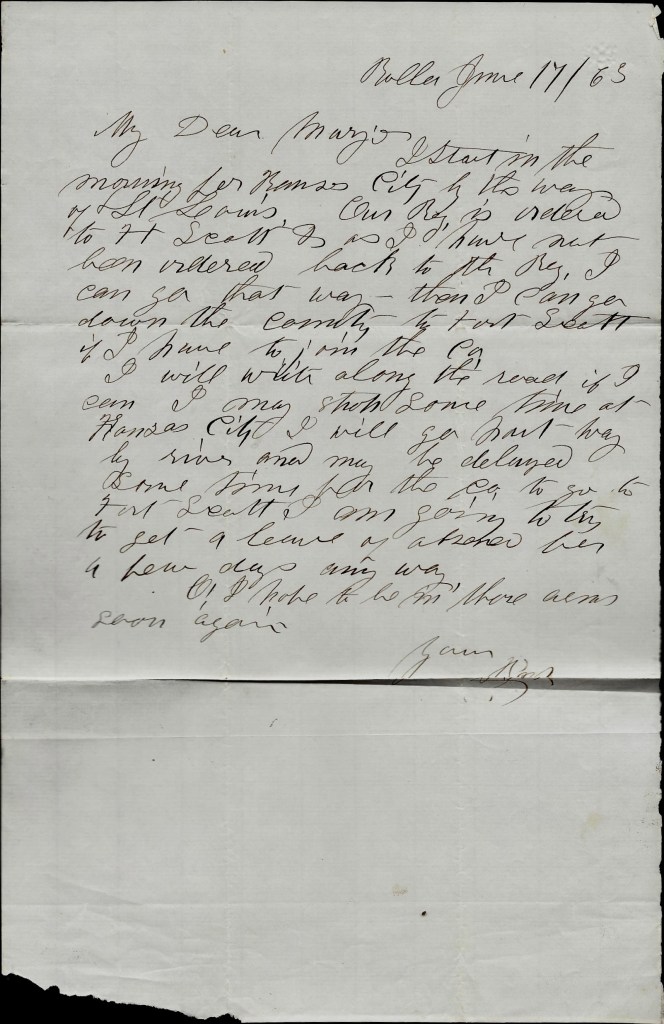 Rolla June 17/63
My Dear Margo
I start in the
morning for Kansas City by the way
of St Louis. Our Reg, is ordered
to Ft Scott & as I have not
been ordered back to the Reg, I
can go that way - then I can go
down the country to Fort Scott
if I have to join the Co,
I will write along the road if I
can I may stop some time at
Kansas City I will go part way
by river and may be delayed
some time for the Co, to go to
Fort Scott, I am going to try
to get a leave of absence
a few days any way
O! I hope to be in those arms
soon again
Your